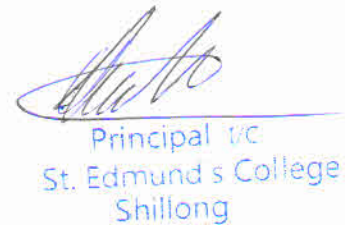 Principal I/C
St. Edmund s College
Shillong